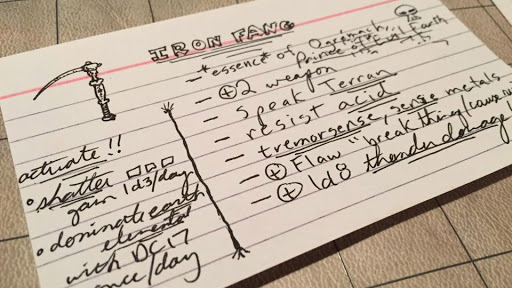 IRON FANG
- *essence* of Ogrémoch,
Prince of Evil Earth
- +2 weapon
- speak Terran
- resist acid
- tremorsense, sense metals
- + Flaw "break things/cause
- + 1d8 thunder damage!
activate!!
• shatter
gain 1d3/day
• dominate earth
elemental
with DC17
once/day